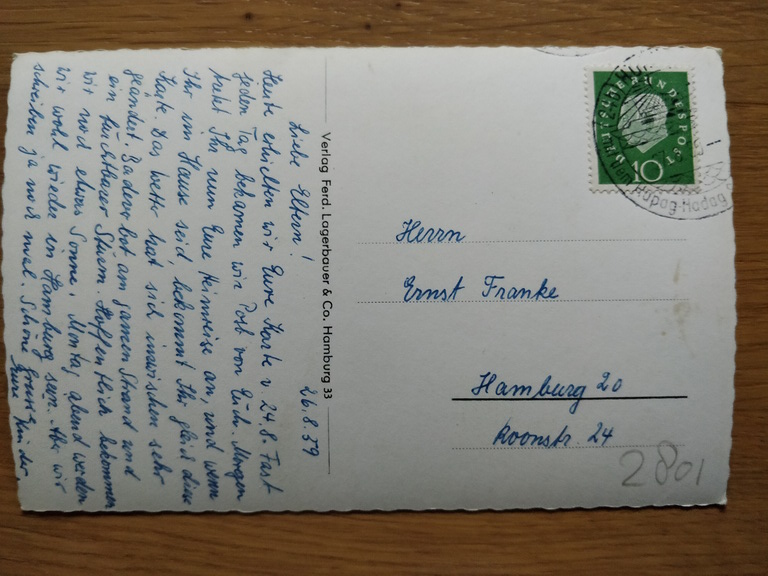 26.8.59
Liebe Eltern!
Heute erhielten wir Eure Karte v 24.8. Fast
jeden Tag bekamen wir Post von Euch. Morgen
tretet Ihr nun Eure Heimreise an, und wenn
Ihr im Hause seid bekommt Ihr gleich diese
Karte. Das Wetter hat sich inzwischen sehr
geändert. Badeverbot am ganzen Strand und
ein furchtbarer Sturm. Hoffentlich bekommen
wir noch etwas Sonne. Montag abend werden
wir wohl wieder in Hamburg sein. Aber wir
schreiben ja noch mal. Schöne Grüsse
Eure Kinder.
Verlag Ferd. Lagerbauer & Co. Hamburg 33
DEUTSCHE BUNDESPOST
10
Hapag-Hadag
Herrn
Ernst Franke
Hamburg 20
Roonstr. 24
2801